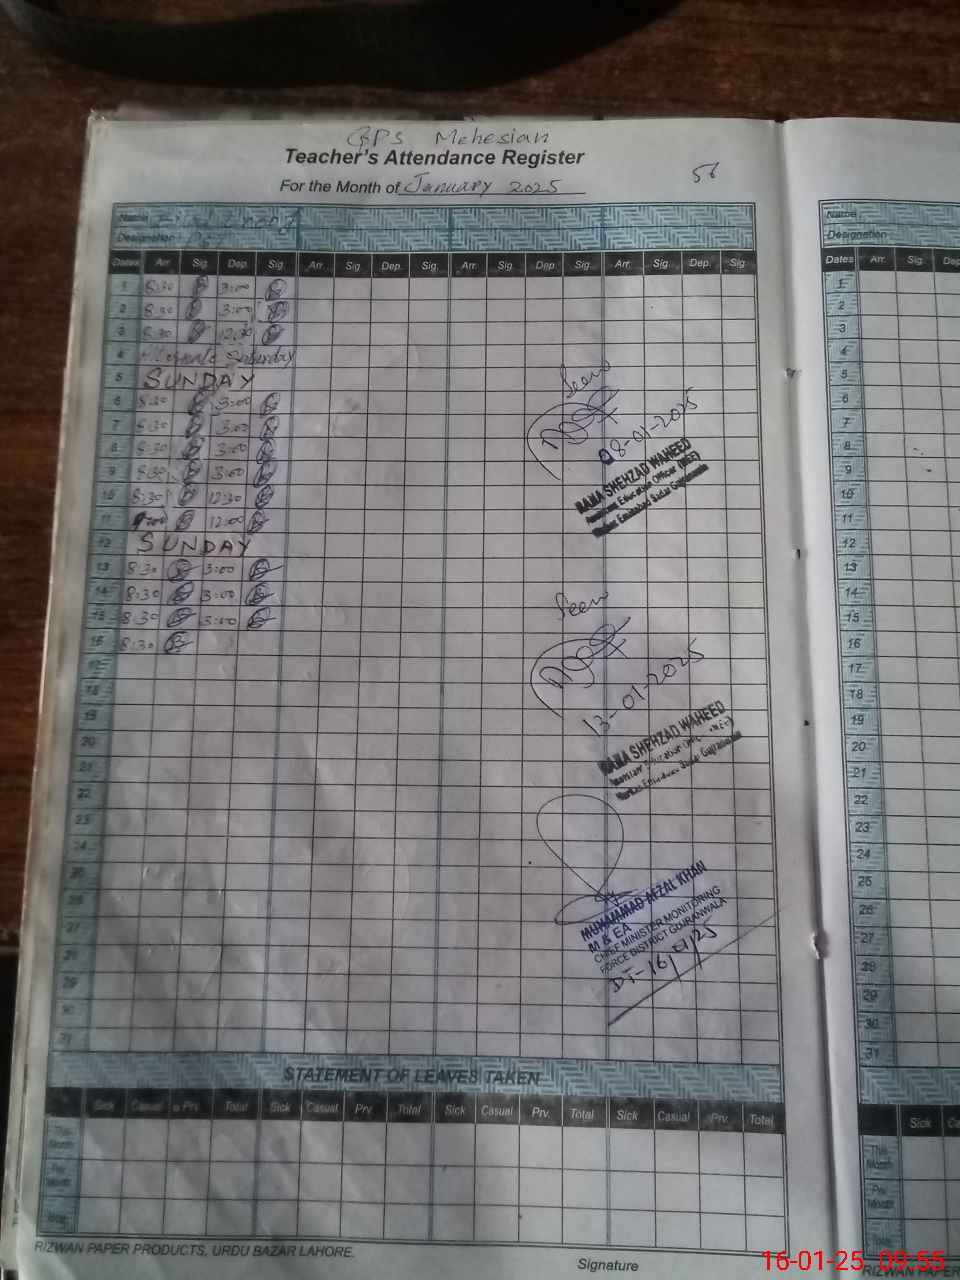 GPS Mehesian
Teacher's Attendance Register
56
For the Month of January 2025
Name
Designation
Dates Arr. Sig. Dep. Sig. Arr. Sig. Dep. Sig. Arr. Sig. Dep. Sig. Arr. Sig. Dep. Sig.
1 8:30 3:00
2 8:30 3:00
3 8:30 12:30
4 Saturday
5 SUNDAY
6 8:30 3:00
7 8:30 3:00
8 8:30 3:00
9 8:30 3:00
10 8:30 12:30
11 12:00
12 SUNDAY
13 8:30 3:00
14 8:30 3:00
15 8:30 3:00
16 8:30
17
18
19
20
21
22
23
24
25
26
27
28
29
30
31
Seen
08-01-2025
RANA SHEHZAD WAHEED
Assistant Education Officer (MEE)
Markaz Emanabad Sadar Gujranwala
Seen
13-01-2025
RANA SHEHZAD WAHEED
Assistant Education Officer
Markaz Sadar Gujranwala
MUHAMMAD AFZAL KHAN
M & EA
CHIEF MINISTER MONITORING
FORCE DISTRICT GUJRANWALA
DT-16/01/25
STATEMENT OF LEAVES TAKEN
Sick Casual Prv. Total Sick Casual Prv. Total Sick Casual Prv. Total Sick Casual Prv. Total
This Month
Prv Month
Total
RIZWAN PAPER PRODUCTS, URDU BAZAR LAHORE.
Signature
Name
Designation
Dates Arr. Sig. Dep
1
2
3
4
5
6
7
8
9
10
11
12
13
14
15
16
17
18
19
20
21
22
23
24
25
26
27
28
29
30
31
Sick Ca
This Month
Prv Month
Total
RIZWAN PAPER
16-01-25 09:55